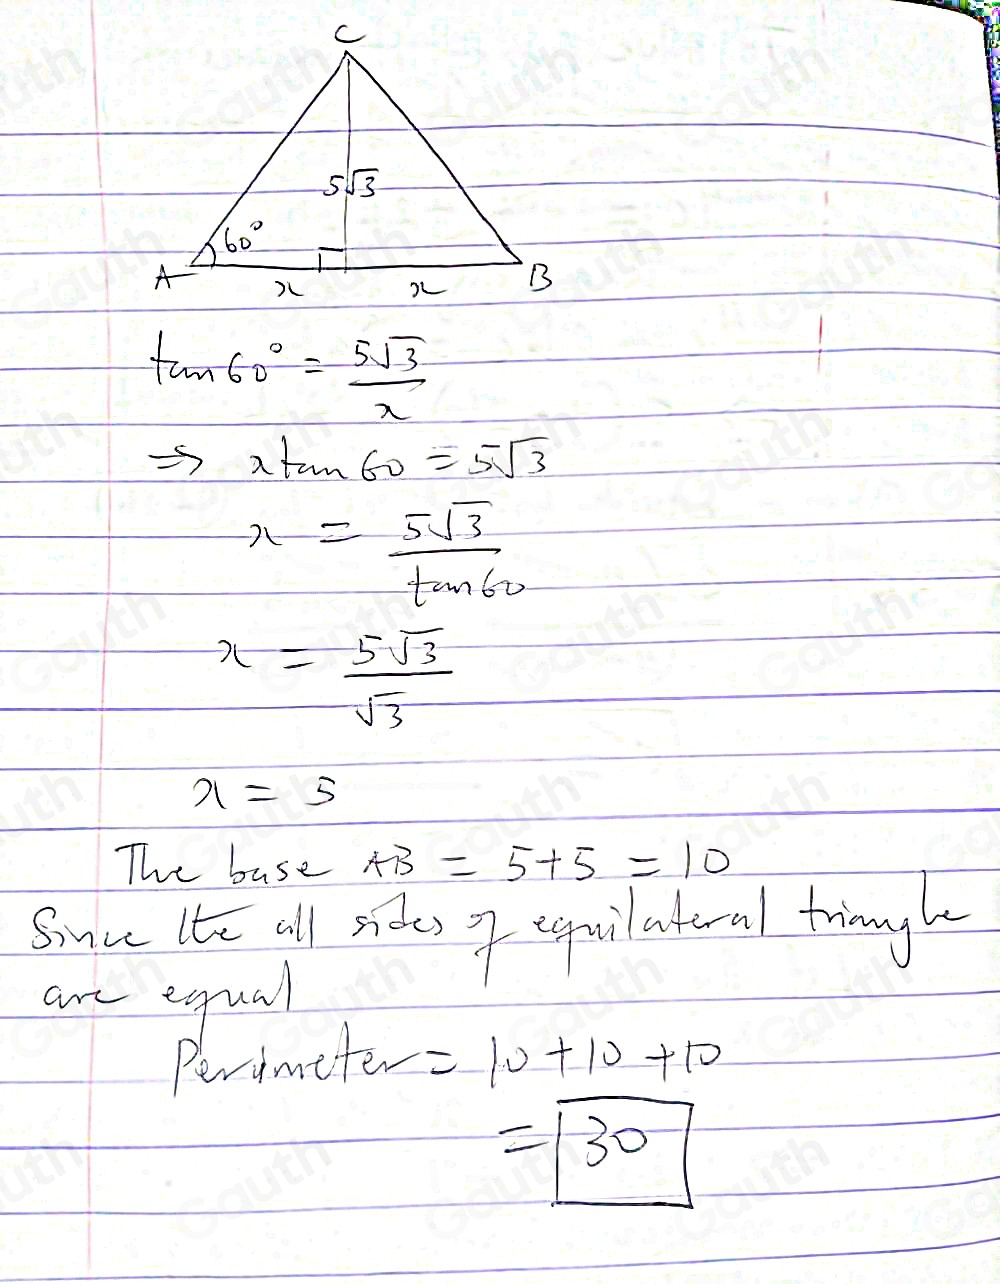 C
5√3
60°
A
x
x
B
tan 60° = 5√3 / x
⇒ x tan 60 = 5√3
x = 5√3 / tan 60
x = 5√3 / √3
x = 5
The base AB = 5+5 = 10
Since the all sides of equilateral triangle
are equal
Perimeter = 10 + 10 + 10
= 30